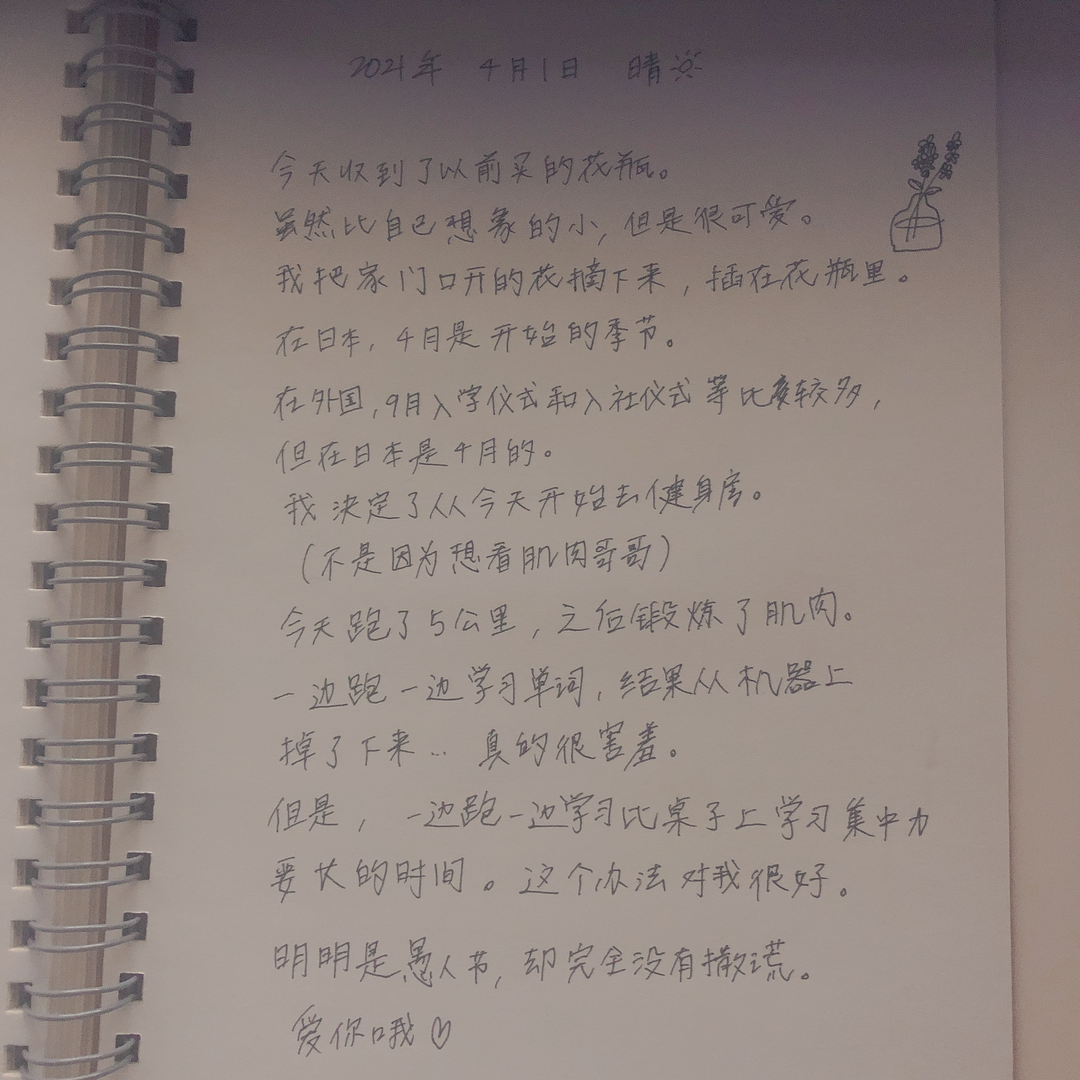 2021年 4月1日 晴
今天收到了以前买的花瓶。
虽然比自己想象的小,但是很可爱。
我把家门口开的花摘下来,插在花瓶里。
在日本,4月是开始的季节。
在外国,9月入学仪式和入社仪式等比较多,
但在日本是4月的。
我决定了从今天开始去健身房。
(不是因为想看肌肉哥哥)
今天跑了5公里,之后锻炼了肌肉。
一边跑一边学习单词,结果从机器上
掉了下来… 真的很害羞。
但是,一边跑一边学习比桌子上学习集中力
要长的时间。这个办法对我很好。
明明是愚人节,却完全没有撒谎。
爱你哦♡